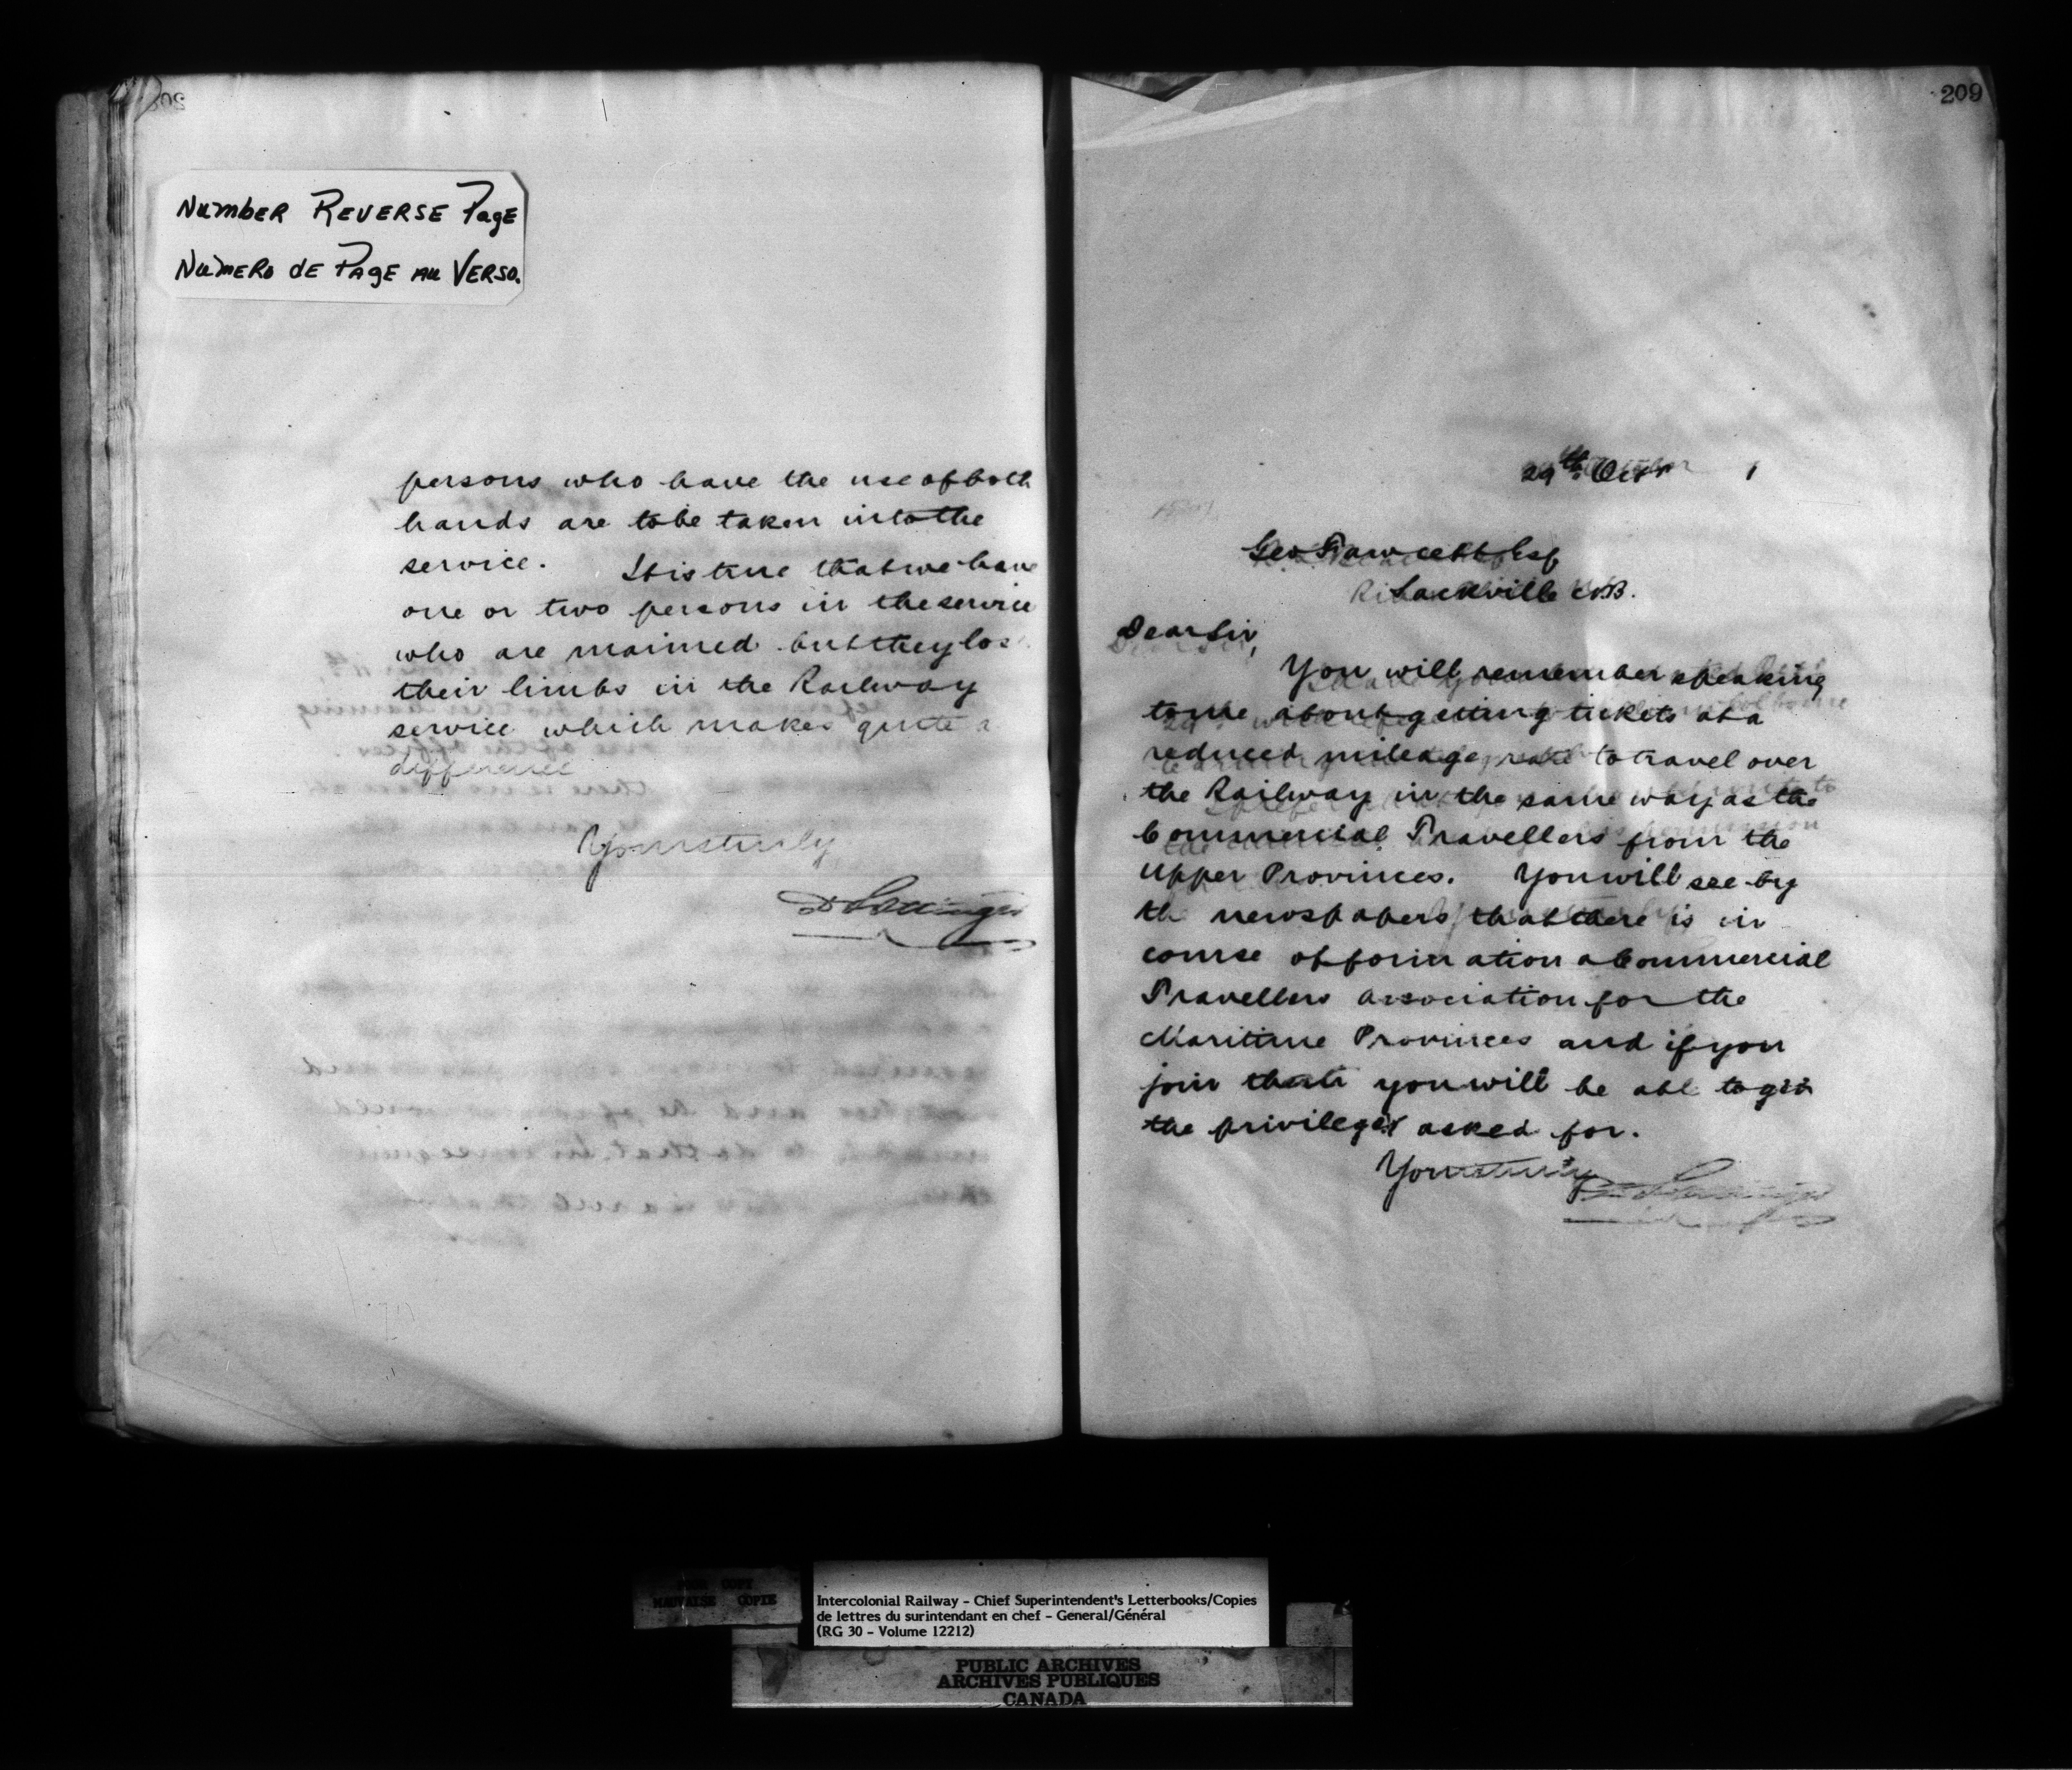 NUMBER REVERSE PAGE
NUMÉRO DE PAGE AU VERSO.
persons who have the use of both
hands are to be taken into the
service. It is true that we have
one or two persons in the service
who are maimed but they los
their limbs in the Railway
service which makes quite a
difference
Yours truly
D Pottinger
209
29th Octr 1
Geo Fawcett Esq
Sackville N.B.
Dear Sir,
You will remember speaking
to me about getting tickets at a
reduced mileage rate to travel over
the Railway in the same way as the
Commercial Travellers from the
Upper Provinces. You will see by
the newspapers that there is in
course of formation a Commercial
Travellers association for the
Maritime Provinces and if you
join that you will be able to get
the privileges asked for.
Yours truly
D Pottinger
POOR COPY
MAUVAISE COPIE
Intercolonial Railway - Chief Superintendent's Letterbooks/Copies
de lettres du surintendant en chef - General/Général
(RG 30 - Volume 12212)
PUBLIC ARCHIVES
ARCHIVES PUBLIQUES
CANADA